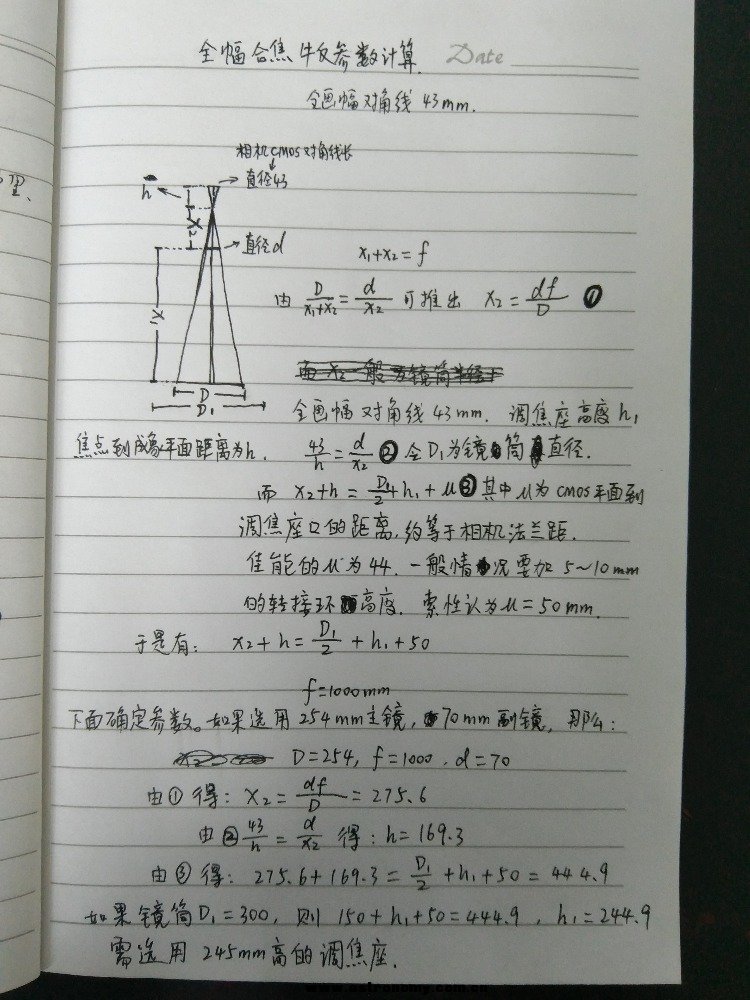 全幅合焦牛反参数计算. Date
全画幅对角线43mm.
相机cmos对角线长
h 直径43
x₂
直径d x₁+x₂=f
由 D/(x₁+x₂) = d/x₂ 可推出 x₂ = df/D ①
x₁
D
D₁
全画幅对角线43mm. 调焦座高度h₁
焦点到成象平面距离为h. 43/h = d/x₂ ② 令D₁为镜筒直径.
而 x₂+h = D₁/2 + h₁ + μ ③ 其中μ为cmos平面到
调焦座口的距离,约等于相机法兰距.
佳能的μ为44. 一般情况要加5~10mm
的转接环高度. 索性认为μ=50mm.
于是有: x₂+h = D₁/2 + h₁+50
f=1000mm
下面确定参数。如果选用254mm主镜, 70mm副镜, 那么:
D=254, f=1000, d=70
由①得: x₂ = df/D = 275.6
由② 43/h = d/x₂ 得: h=169.3
由③得: 275.6+169.3 = D₁/2 +h₁+50 = 444.9
如果镜筒D₁=300, 则 150+h₁+50=444.9, h₁=244.9
需选用245mm高的调焦座.